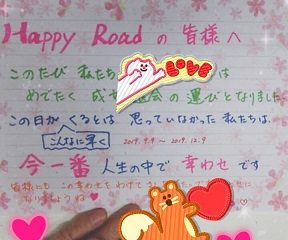 Happy Road の 皆様へ
このたび 私たち は
めでたく 成 会 の 運びとなりました。
この日が くるとは 思っていなかった 私たちは、
こんなに早く
2019.9.9 〜 2019.12.9
今一番 人生の中で 幸わせ です
皆様にも この幸わせを わけて
LOVE